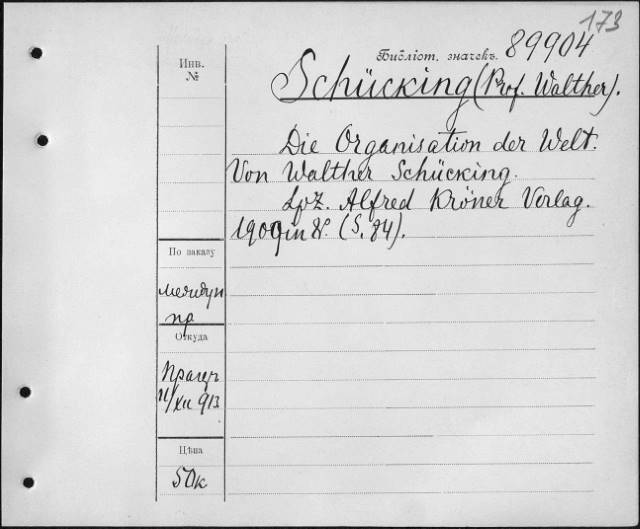 173
Библіот. значекъ. 89904
Инв.
№
Schücking (Prof. Walther).
Die Organisation der Welt.
Von Walther Schücking.
Lpz. Alfred Kröner Verlag.
1909 in 8°. (S. 84).
По заказу
междун
пр
Откуда
Прагеръ
11/XII 913
Цѣна
50к